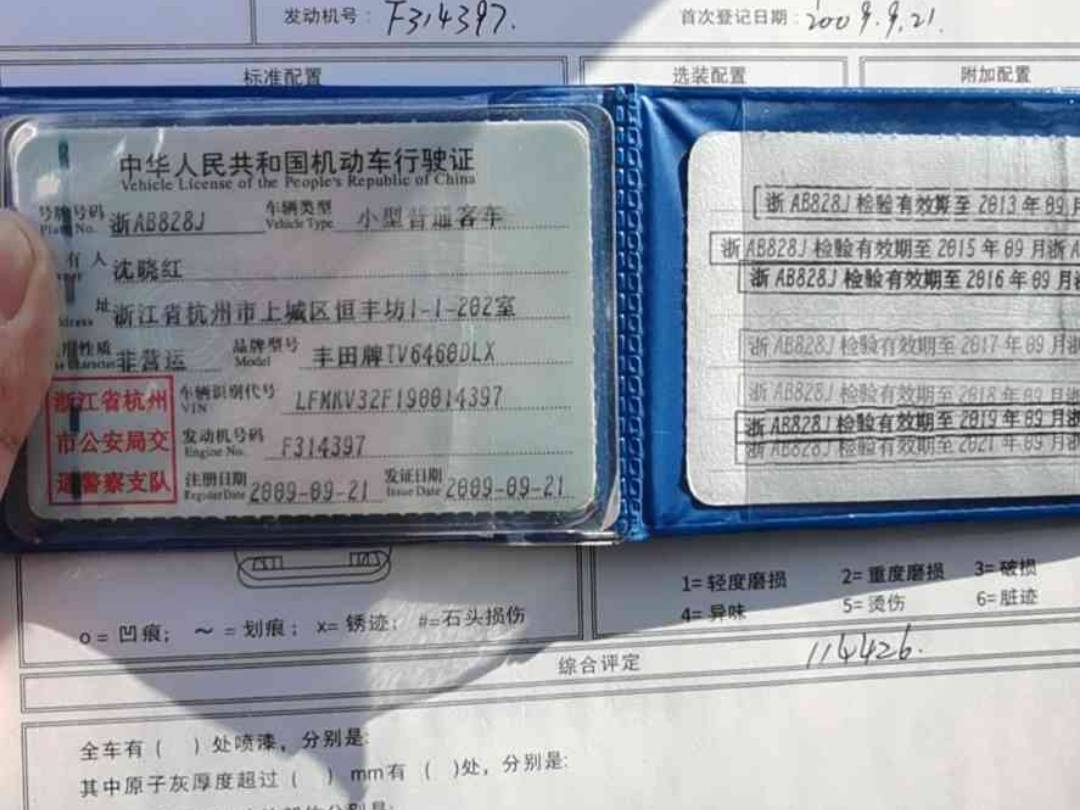 发动机号: F314397.
首次登记日期: 2009.9.21.
标准配置
选装配置
附加配置
中华人民共和国机动车行驶证
Vehicle License of the People's Republic of China
号牌号码 浙AB828J 车辆类型 小型普通客车
Plate No. Vehicle Type
有人 沈晓红
址 浙江省杭州市上城区恒丰坊1-1-202室
用性质 非营运 品牌型号 丰田牌TV6460DLX
Model
浙江省杭州
市公安局交
通警察支队
车辆识别代号 LFMKV32F190014397
VIN
发动机号码 F314397
Engine No.
注册日期 2009-09-21 发证日期 2009-09-21
Register Date Issue Date
浙AB828J检验有效期至2013年09月
浙AB828J检验有效期至2015年09月浙A
浙AB828J检验有效期至2016年09月浙
浙AB828J检验有效期至2017年09月浙
浙AB828J检验有效期至2018年09月浙
浙AB828J检验有效期至2019年09月浙
浙AB828J检验有效期至2021年09月浙
o=凹痕; ~=划痕; x=锈迹; #=石头损伤
1=轻度磨损 2=重度磨损 3=破损
4=异味 5=烫伤 6=脏迹
综合评定 114426.
全车有( )处喷漆,分别是:
其中原子灰厚度超过( )mm有( )处,分别是: